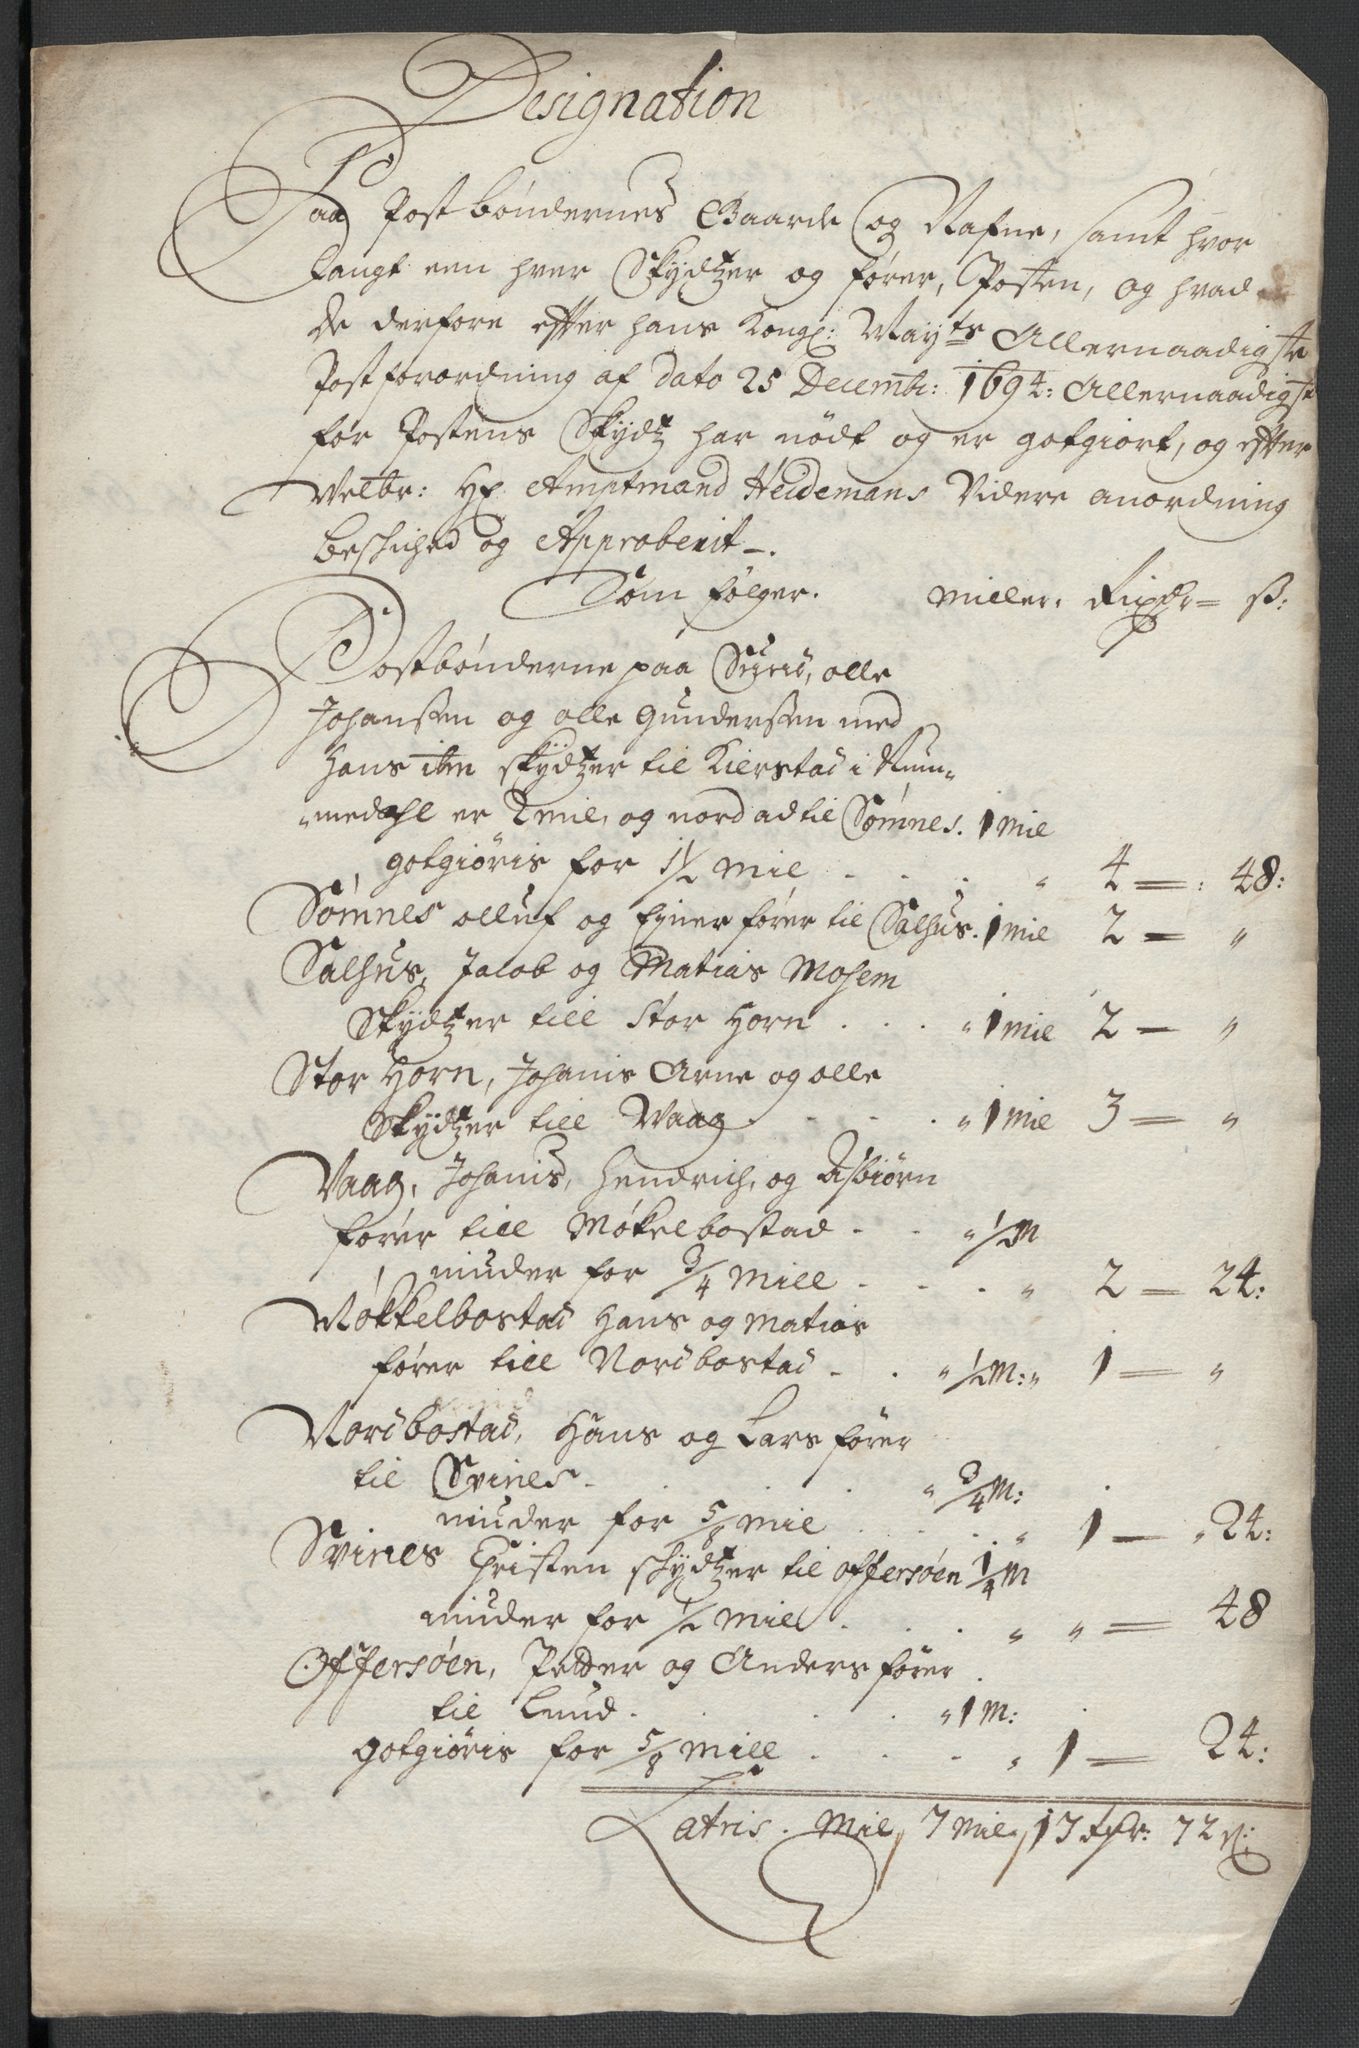 Designation
Paa Postbøndernes Gaarde og Nafne, samt hvor
langt een hver Skydtzer og fører, Posten, og hvad
de derfore efter hans Kongl: Mayts Allernaadigste
Postforordning af dato 25 Decembr: 1694: Allernaadigst
for Postens Skydtz har nødt og er gotgiort, og efter
Welbr: Hr Amptmand Heidemans Videre anordning
beskiched og Approberit.
Som følger. Miller. Rixdr ß:
Postbønderne paa olle
Johanssen og olle Gunderssen med
Hans ibm skydtzer til Kierstad i Num-
medahl er 2 mil, og nord ad til Sømnes. 1 Mil
gotgiøris for 1½ Mil . . . " 4 = : 48:
Sømnes olluf og Ejner fører til Salhus. 1 Mil 2 = "
Salhus, Jacob og Matias Mosem
Skydtzer till Stor Horn . . . " 1 Mil 2 - "
Stor Horn, Johanis Arne og olle
Skydtzer till Vaag . . . . " 1 Mil 3 = "
Vaag, Johanis, Hendrich, og Asbiørn
fører till Møkelbostad . . " ½ M
niuder for ¾ Mill . . . " 2 = 24:
Møkkelbostad Hans og Matias
fører till Nordbostad . . " ½ M: " 1 = "
Nordbostad, Hans og Lars fører
til Svines . . . " ¾ M:
niuder for 5/8 Mil . . . " 1 - " 24:
Svines Christen skydtzer til Offersøen ¼ M
niuder for ½ Mill . . . " " = 48
Offersøen, Peder og Anders fører
til Lund . . . . " 1 M:
gotgiøris for 5/8 Mill . . . " 1 = 24:
Latris. Mil, 7 Mil, 17 Rdr: 72 ß: